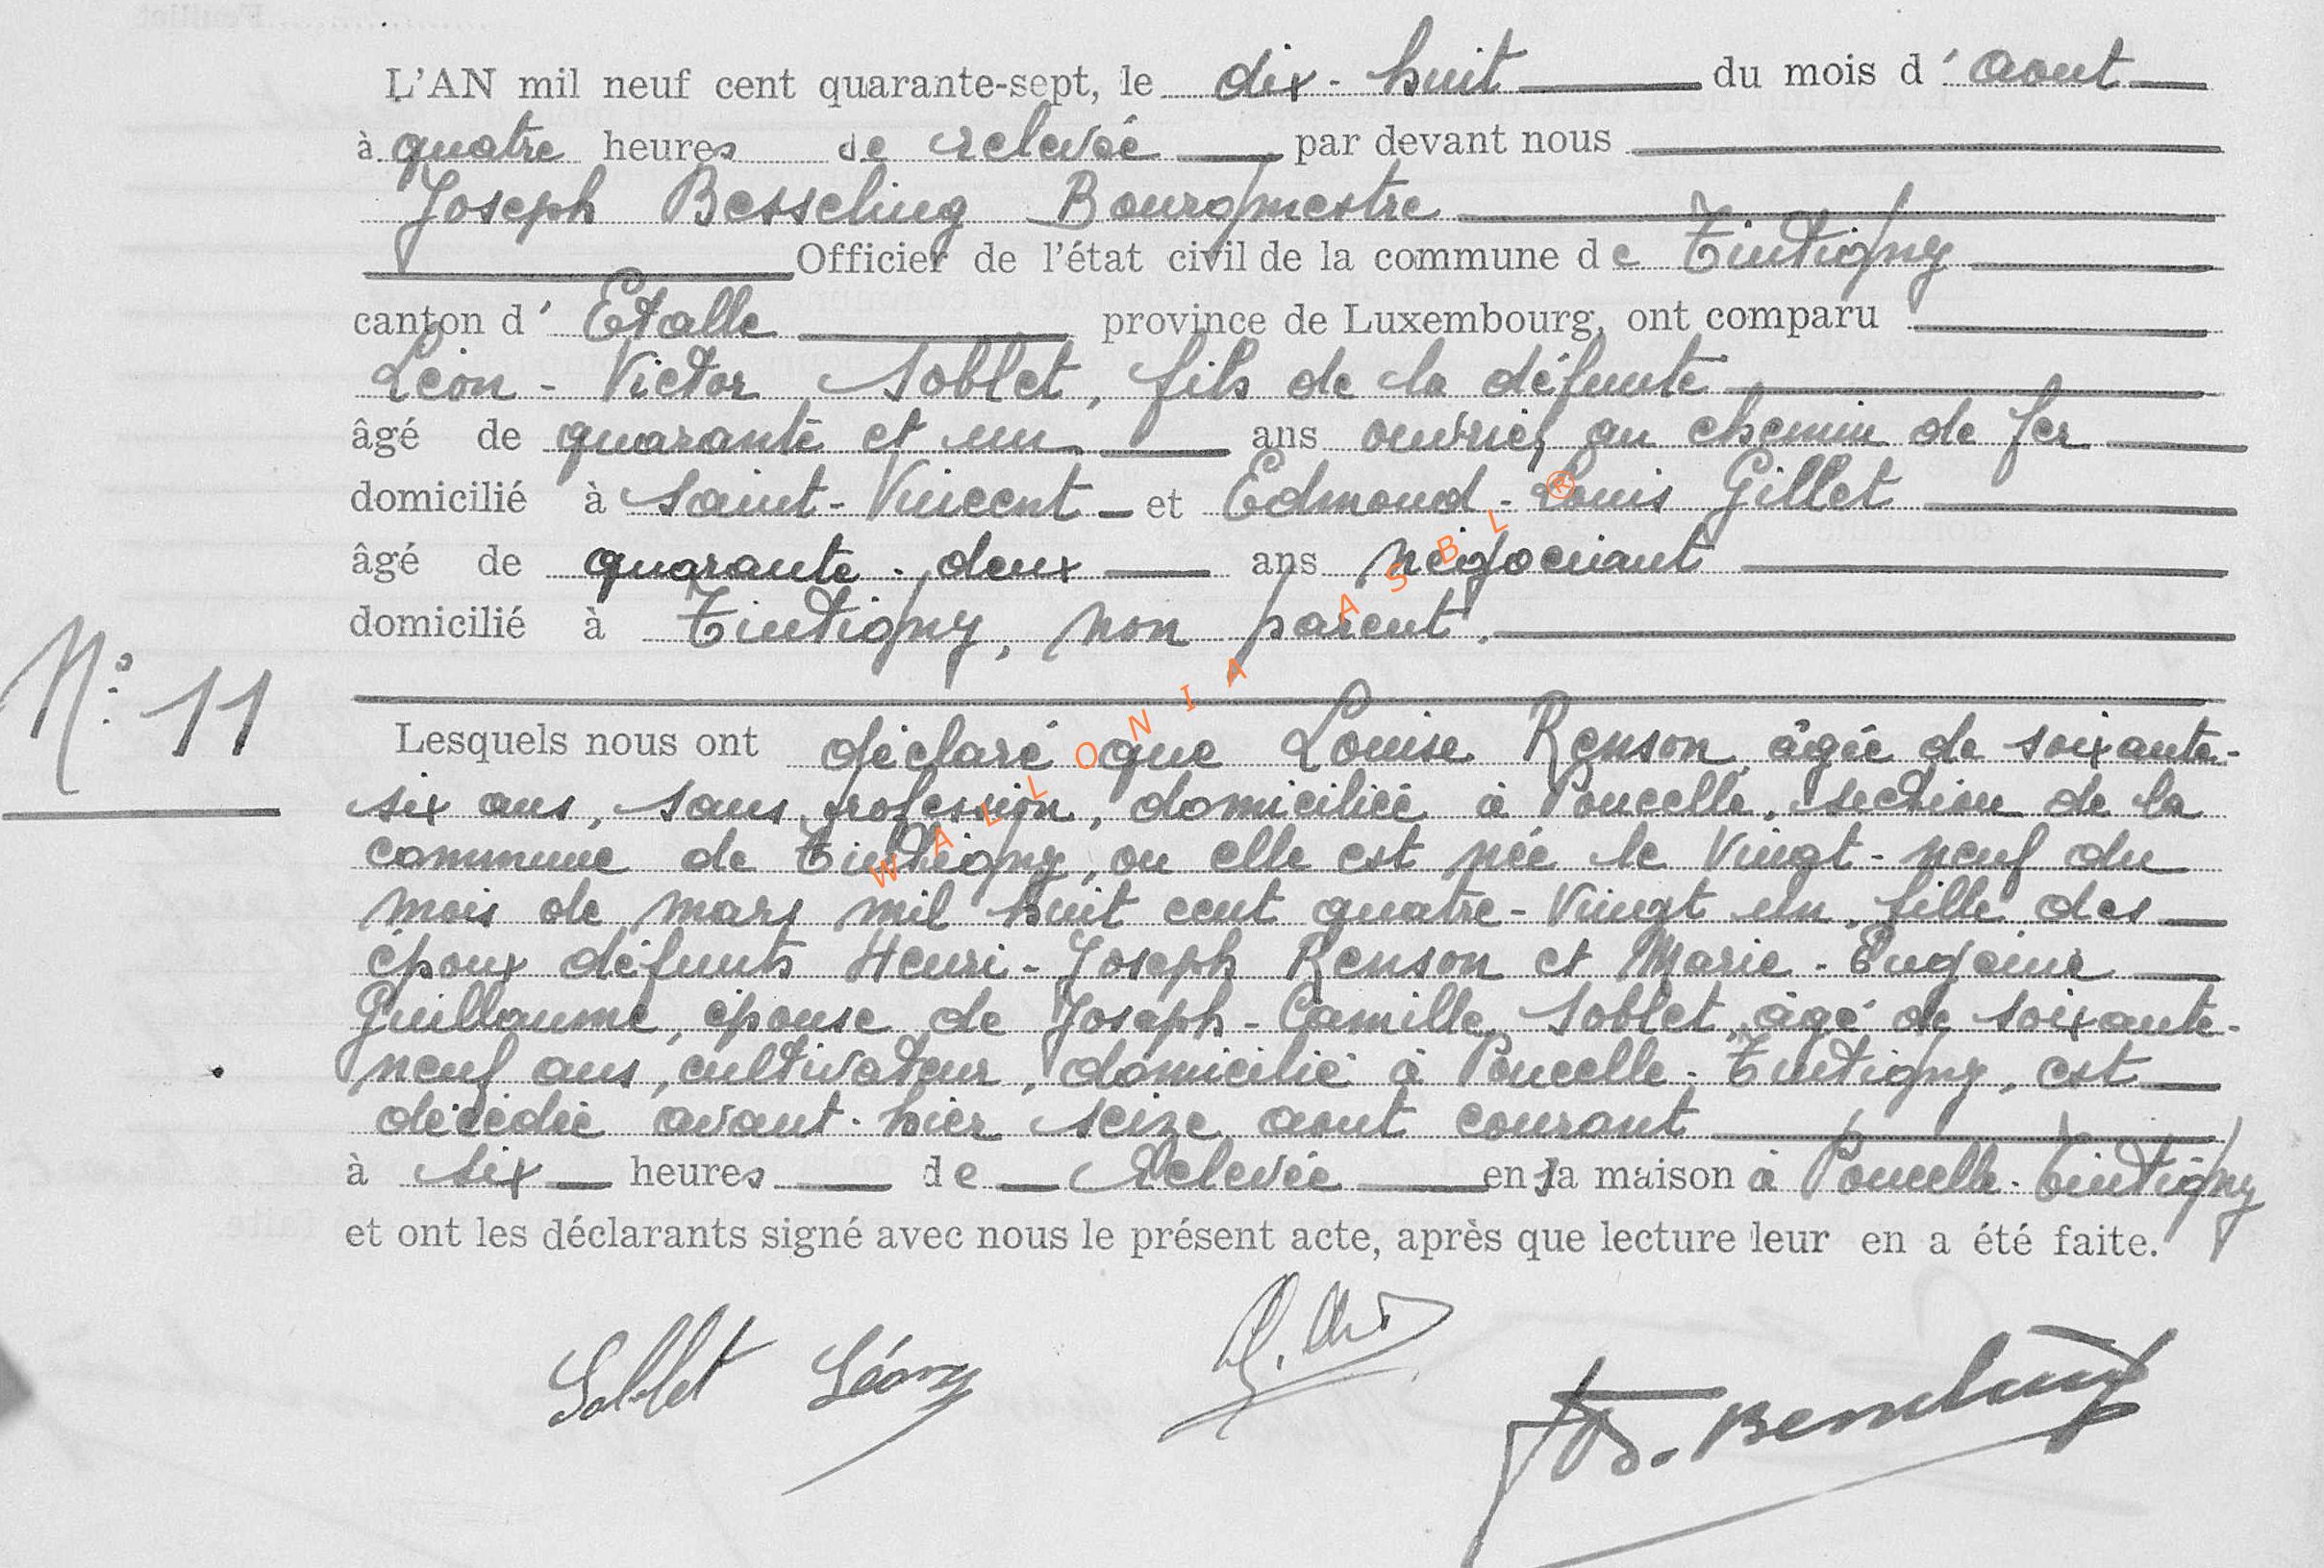 L'AN mil neuf cent quarante-sept, le dix-huit du mois d'aout
à quatre heures de relevée par devant nous
Joseph Besseling Bourgmestre
Officier de l'état civil de la commune de Tintigny
canton d'Etalle province de Luxembourg, ont comparu
Léon-Victor Soblet, fils de la défunte
âgé de quarante et un ans ouvrier au chemin de fer
domicilié à Saint-Vincent et Edmond-Louis Gillet
âgé de quarante-deux ans négociant
domicilié à Tintigny, non parent.
N° 11
Lesquels nous ont déclaré que Louise Renson, âgée de soixante-
six ans, sans profession, domiciliée à Poncelle, section de la
commune de Tintigny, ou elle est née le vingt-neuf du
mois de mars mil huit cent quatre-vingt un, fille des
époux défunts Henri-Joseph Renson et Marie-Eugénie
Guillaume, épouse de Joseph-Camille Soblet, âgé de soixante-
neuf ans, cultivateur, domicilié à Poncelle-Tintigny, est
décédée avant-hier seize aout courant
à six heures de relevée en sa maison à Poncelle-Tintigny
et ont les déclarants signé avec nous le présent acte, après que lecture leur en a été faite.
Soblet Léon
J. Besseling
WALLONIA ASBL ®